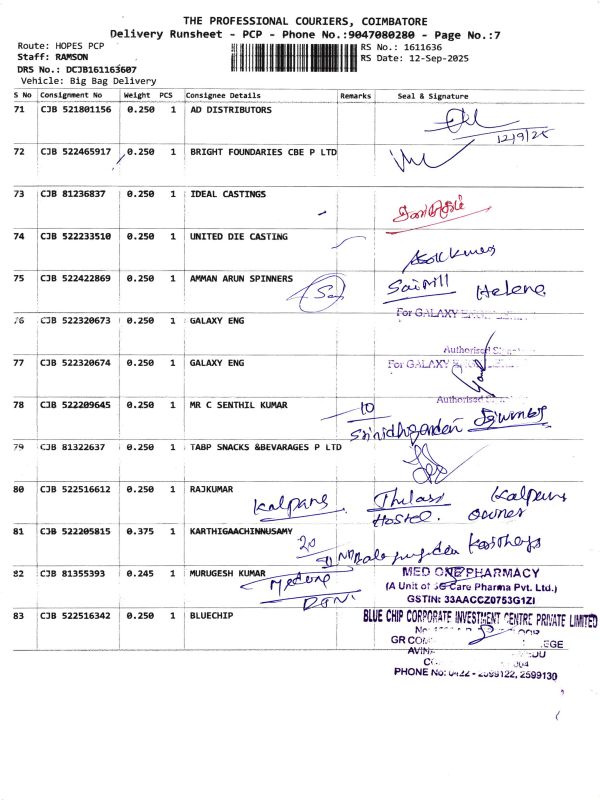 THE PROFESSIONAL COURIERS, COIMBATORE
Delivery Runsheet - PCP - Phone No.:9047080280 - Page No.:7
Route: HOPES PCP RS No.: 1611636
Staff: RAMSON RS Date: 12-Sep-2025
DRS No.: DCJB161163607
Vehicle: Big Bag Delivery
S No Consignment No Weight PCS Consignee Details Remarks Seal & Signature
71 CJB 521801156 0.250 1 AD DISTRIBUTORS
12/9/25
72 CJB 522465917 0.250 1 BRIGHT FOUNDARIES CBE P LTD
73 CJB 81236837 0.250 1 IDEAL CASTINGS
74 CJB 522233510 0.250 1 UNITED DIE CASTING
75 CJB 522422869 0.250 1 AMMAN ARUN SPINNERS
Helena
76 CJB 522320673 0.250 1 GALAXY ENG For GALAXY
Authorised
77 CJB 522320674 0.250 1 GALAXY ENG For GALAXY
Authorised
78 CJB 522209645 0.250 1 MR C SENTHIL KUMAR 10
79 CJB 81322637 0.250 1 TABP SNACKS &BEVARAGES P LTD
80 CJB 522516612 0.250 1 RAJKUMAR
Kalpans Thulasi Kalpans
Hostel. Owner
81 CJB 522205815 0.375 1 KARTHIGAACHINNUSAMY
20
82 CJB 81355393 0.245 1 MURUGESH KUMAR MED ONE PHARMACY
(A Unit of Care Pharma Pvt. Ltd.)
GSTIN: 33AACCZ0753G1ZI
83 CJB 522516342 0.250 1 BLUECHIP BLUE CHIP CORPORATE INVESTMENT CENTRE PRIVATE LIMITED
PHONE No: 0422 - 2599122, 2599130